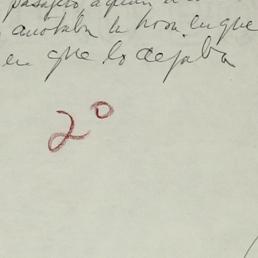 pasajero, a quien
anotaba la hora en que
en que lo dejaba
2º